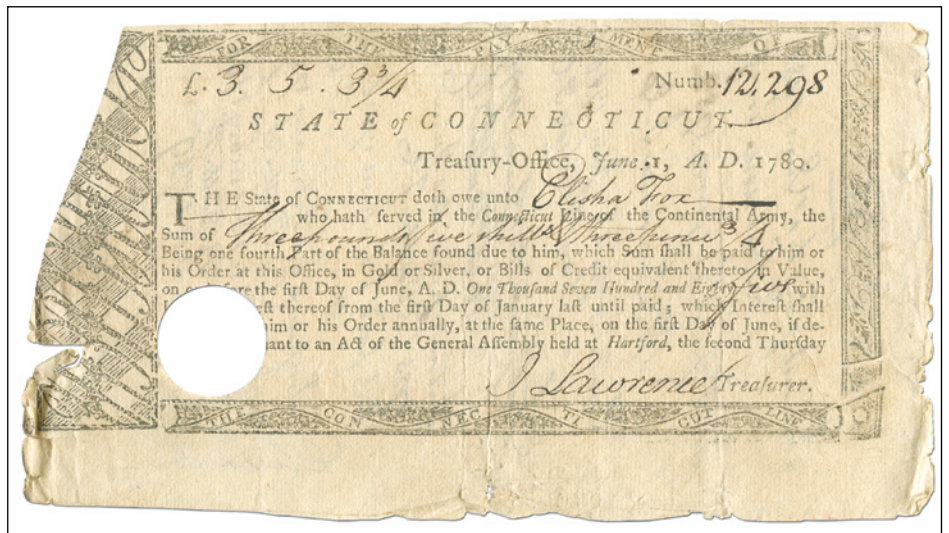 FOR THE PAY MENT OF
£. 3. 5. 3 3/4 Numb. 12,298
STATE of CONNECTICUT
Treaſury-Office, June 1, A. D. 1780.
THE State of CONNECTICUT doth owe unto Elisha Fox
who hath ſerved in the Connecticut Line of the Continental Army, the
Sum of Three pounds five shills & three pence 3/4
Being one fourth Part of the Balance found due to him, which Sum ſhall be paid to him or
his Order at this Office, in Gold or Silver, or Bills of Credit equivalent thereto in Value,
on or before the firſt Day of June, A. D. One Thouſand Seven Hundred and Eighty five with
eſt thereof from the firſt Day of January laſt until paid; which Intereſt ſhall
him or his Order annually, at the ſame Place, on the firſt Day of June, if de-
uant to an Act of the General Aſſembly held at Hartford, the ſecond Thurſday
J Lawrence Treaſurer.
THE CON NEC TI CUT LINE